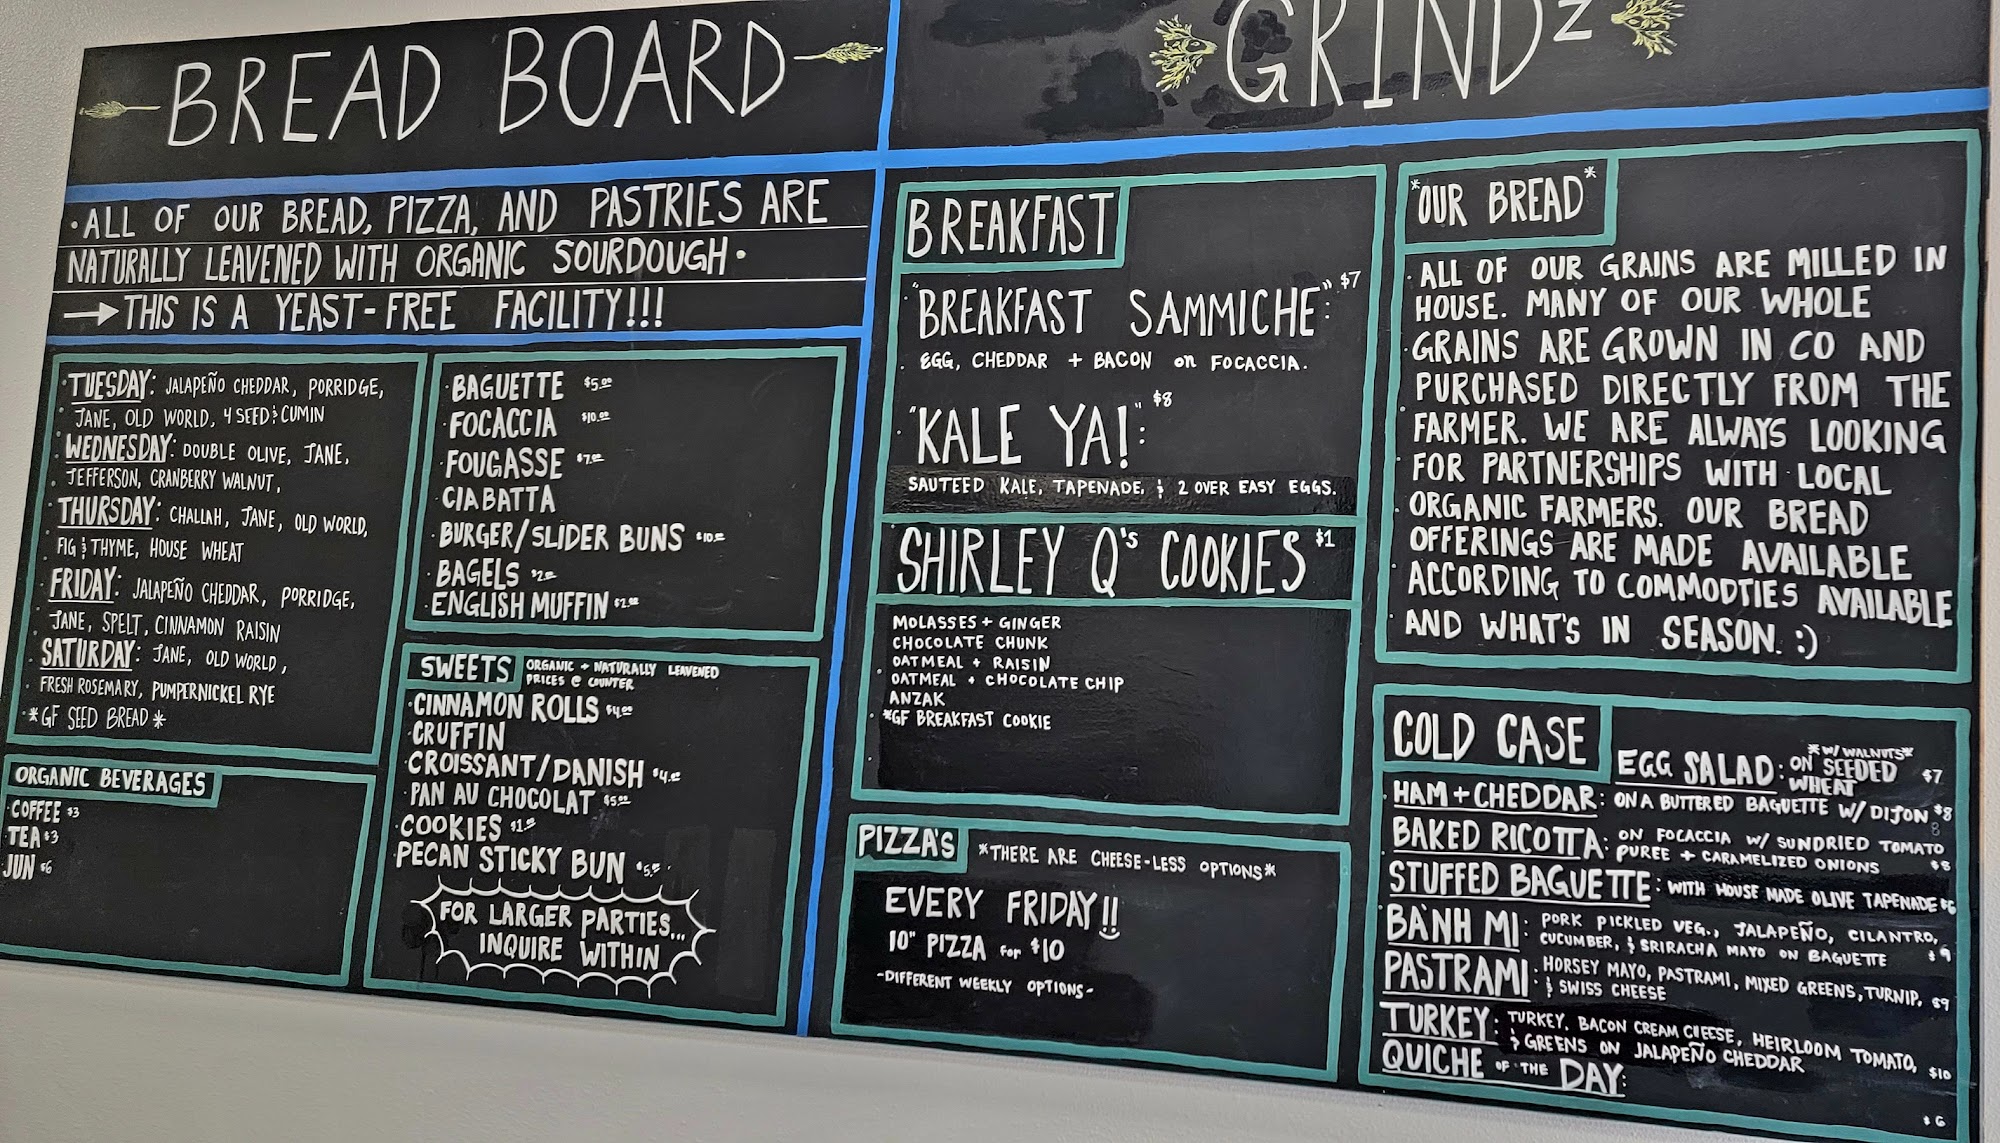 BREAD BOARD
•ALL OF OUR BREAD, PIZZA, AND PASTRIES ARE
NATURALLY LEAVENED WITH ORGANIC SOURDOUGH•
→THIS IS A YEAST-FREE FACILITY!!!
•TUESDAY: JALAPEÑO CHEDDAR, PORRIDGE,
JANE, OLD WORLD, 4 SEED & CUMIN
WEDNESDAY: DOUBLE OLIVE, JANE,
JEFFERSON, CRANBERRY WALNUT,
THURSDAY: CHALLAH, JANE, OLD WORLD,
FIG & THYME, HOUSE WHEAT
FRIDAY: JALAPEÑO CHEDDAR, PORRIDGE,
JANE, SPELT, CINNAMON RAISIN
SATURDAY: JANE, OLD WORLD,
FRESH ROSEMARY, PUMPERNICKEL RYE
*GF SEED BREAD*
ORGANIC BEVERAGES
•COFFEE $3
•TEA $3
•JUN $6
•BAGUETTE $5.00
•FOCACCIA $10.00
•FOUGASSE $7.00
CIABATTA
•BURGER/SLIDER BUNS $10.00
•BAGELS $2.00
•ENGLISH MUFFIN $2.00
SWEETS ORGANIC + NATURALLY LEAVENED
PRICES @ COUNTER
•CINNAMON ROLLS $4.00
CRUFFIN
•CROISSANT/DANISH $4.00
•PAN AU CHOCOLAT $5.00
•COOKIES $1.00
•PECAN STICKY BUN $5.00
FOR LARGER PARTIES...
INQUIRE WITHIN
GRINDZ
BREAKFAST
"BREAKFAST SAMMICHE": $7
EGG, CHEDDAR + BACON on FOCACCIA.
"KALE YA!": $8
SAUTEED KALE, TAPENADE, & 2 OVER EASY EGGS.
SHIRLEY Q's COOKIES $1
MOLASSES + GINGER
CHOCOLATE CHUNK
OATMEAL + RAISIN
OATMEAL + CHOCOLATE CHIP
ANZAK
*GF BREAKFAST COOKIE
PIZZA'S *THERE ARE CHEESE-LESS OPTIONS*
EVERY FRIDAY!!
10" PIZZA for $10
-DIFFERENT WEEKLY OPTIONS-
*OUR BREAD*
ALL OF OUR GRAINS ARE MILLED IN
HOUSE. MANY OF OUR WHOLE
GRAINS ARE GROWN IN CO AND
PURCHASED DIRECTLY FROM THE
FARMER. WE ARE ALWAYS LOOKING
FOR PARTNERSHIPS WITH LOCAL
ORGANIC FARMERS. OUR BREAD
OFFERINGS ARE MADE AVAILABLE
ACCORDING TO COMMODTIES AVAILABLE
AND WHAT'S IN SEASON. :)
COLD CASE
EGG SALAD: ON SEEDED WHEAT *W/ WALNUTS* $7
HAM + CHEDDAR: ON A BUTTERED BAGUETTE W/ DIJON $8
BAKED RICOTTA: ON FOCACCIA W/ SUNDRIED TOMATO
PUREE + CARAMELIZED ONIONS $8
STUFFED BAGUETTE: WITH HOUSE MADE OLIVE TAPENADE $6
BÀNH MI: PORK PICKLED VEG., JALAPEÑO, CILANTRO,
CUCUMBER, & SRIRACHA MAYO ON BAGUETTE $9
PASTRAMI: HORSEY MAYO, PASTRAMI, MIXED GREENS, TURNIP,
& SWISS CHEESE $9
TURKEY: TURKEY, BACON CREAM CHEESE, HEIRLOOM TOMATO,
& GREENS ON JALAPEÑO CHEDDAR $10
QUICHE OF THE DAY:
$6